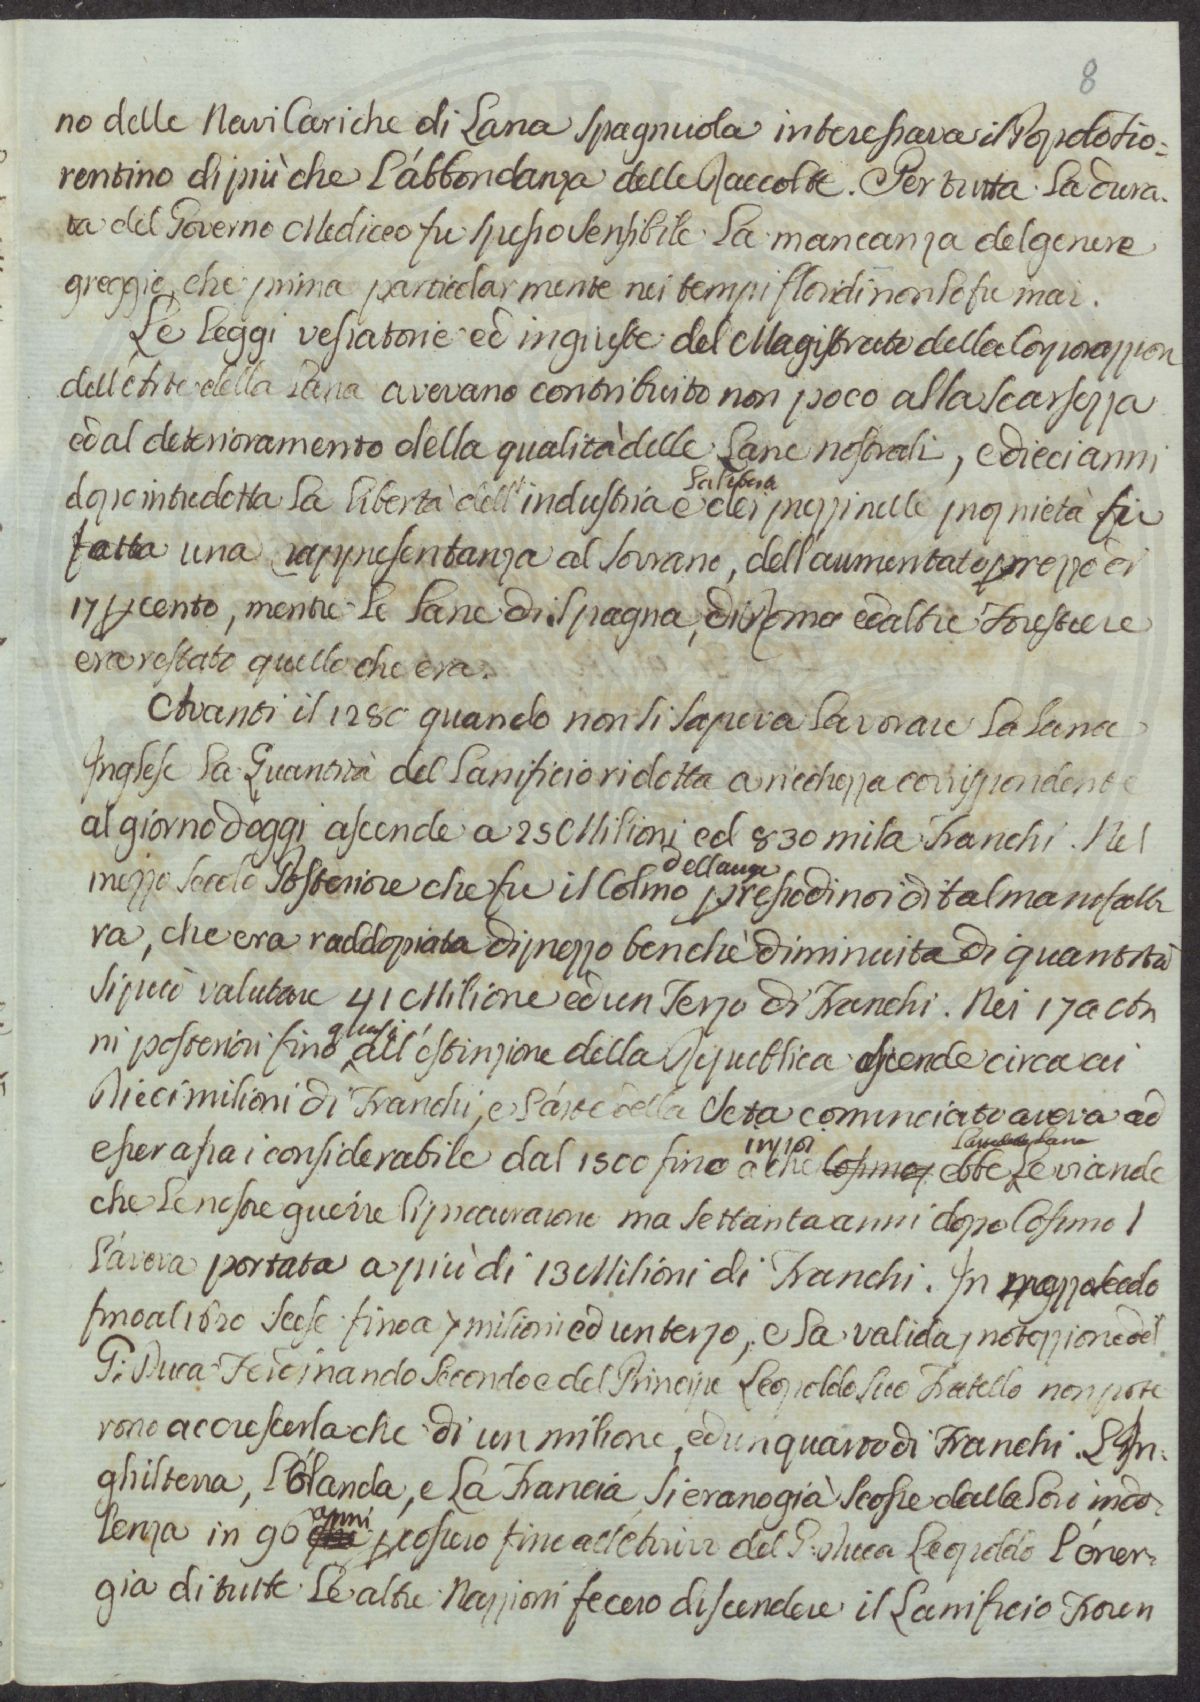 8
no delle Navi Cariche di Lana Spagnuola interessava il Popolo Fio=
rentino di più che l'abbondanza delle Raccolte. Per tutta la dura-
ta del Governo Mediceo fu spesso sensibile la mancanza del genere
greggio, che prima particolarmente nei tempi floridi non lo fu mai.
Le leggi vessatorie ed ingiuste del Magistrato della Corporazzion
dell'Arte della Lana avevano contribuito non poco alla scarsezza
ed al deterioramento della qualità delle Lane nostrali, e dieci anni
dopo introdotta la libertà dell'industria e la libera dei prezzi nelle proprietà fu
fatta una rappresentanza al Sovrano, dell'aumentato prezzo di
17 p cento, mentre le Lane di Spagna, di Roma ed altre Forestiere
era restato quello che era.
Avanti il 1280 quando non si sapeva lavorare la Lana
Inglese la Quantità del Lanificio ridotta a ricchezza corrispondente
al giorno d'oggi ascende a 25 Milioni ed 830 mila Franchi. Nel
mezzo secolo Posteriore che fu il Colmo dell'auge presso di noi di tal manifattu
ra, che era raddopiata di prezzo benchè diminuita di quantità
si può valutare 41 Milione ed un Terzo di Franchi. Nei 170 An
ni posteriori fino quasi all'estinzione della Repubblica ascende circa ai
Dieci milioni di Franchi, e l'arte della Seta cominciato aveva ad
esser assai considerabile dal 1500 fino a che Cosimo ebbe le viande
che le nostre guerre li procurarono ma settanta anni dopo Cosimo I
l'aveva portata a più di 13 Milioni di Franchi. In mezzo secolo
fino al 1620 scese fino a 7 milioni ed un terzo, e la valida protezzione del
G: Duca Ferdinando Secondo e del Principe Leopoldo suo Fratello non pote
rono accrescerla che di un milione, ed un quarto di Franchi. L'In-
ghilterra, l'Olanda, e la Francia si erano già scosse dalla loro indo-
lenza in 90 anni p cosero fino all'Arrivo del G: Duca Leopoldo l'ener-
gia di tutte le altre Nazzioni fecero discendere il Lanificio Fioren